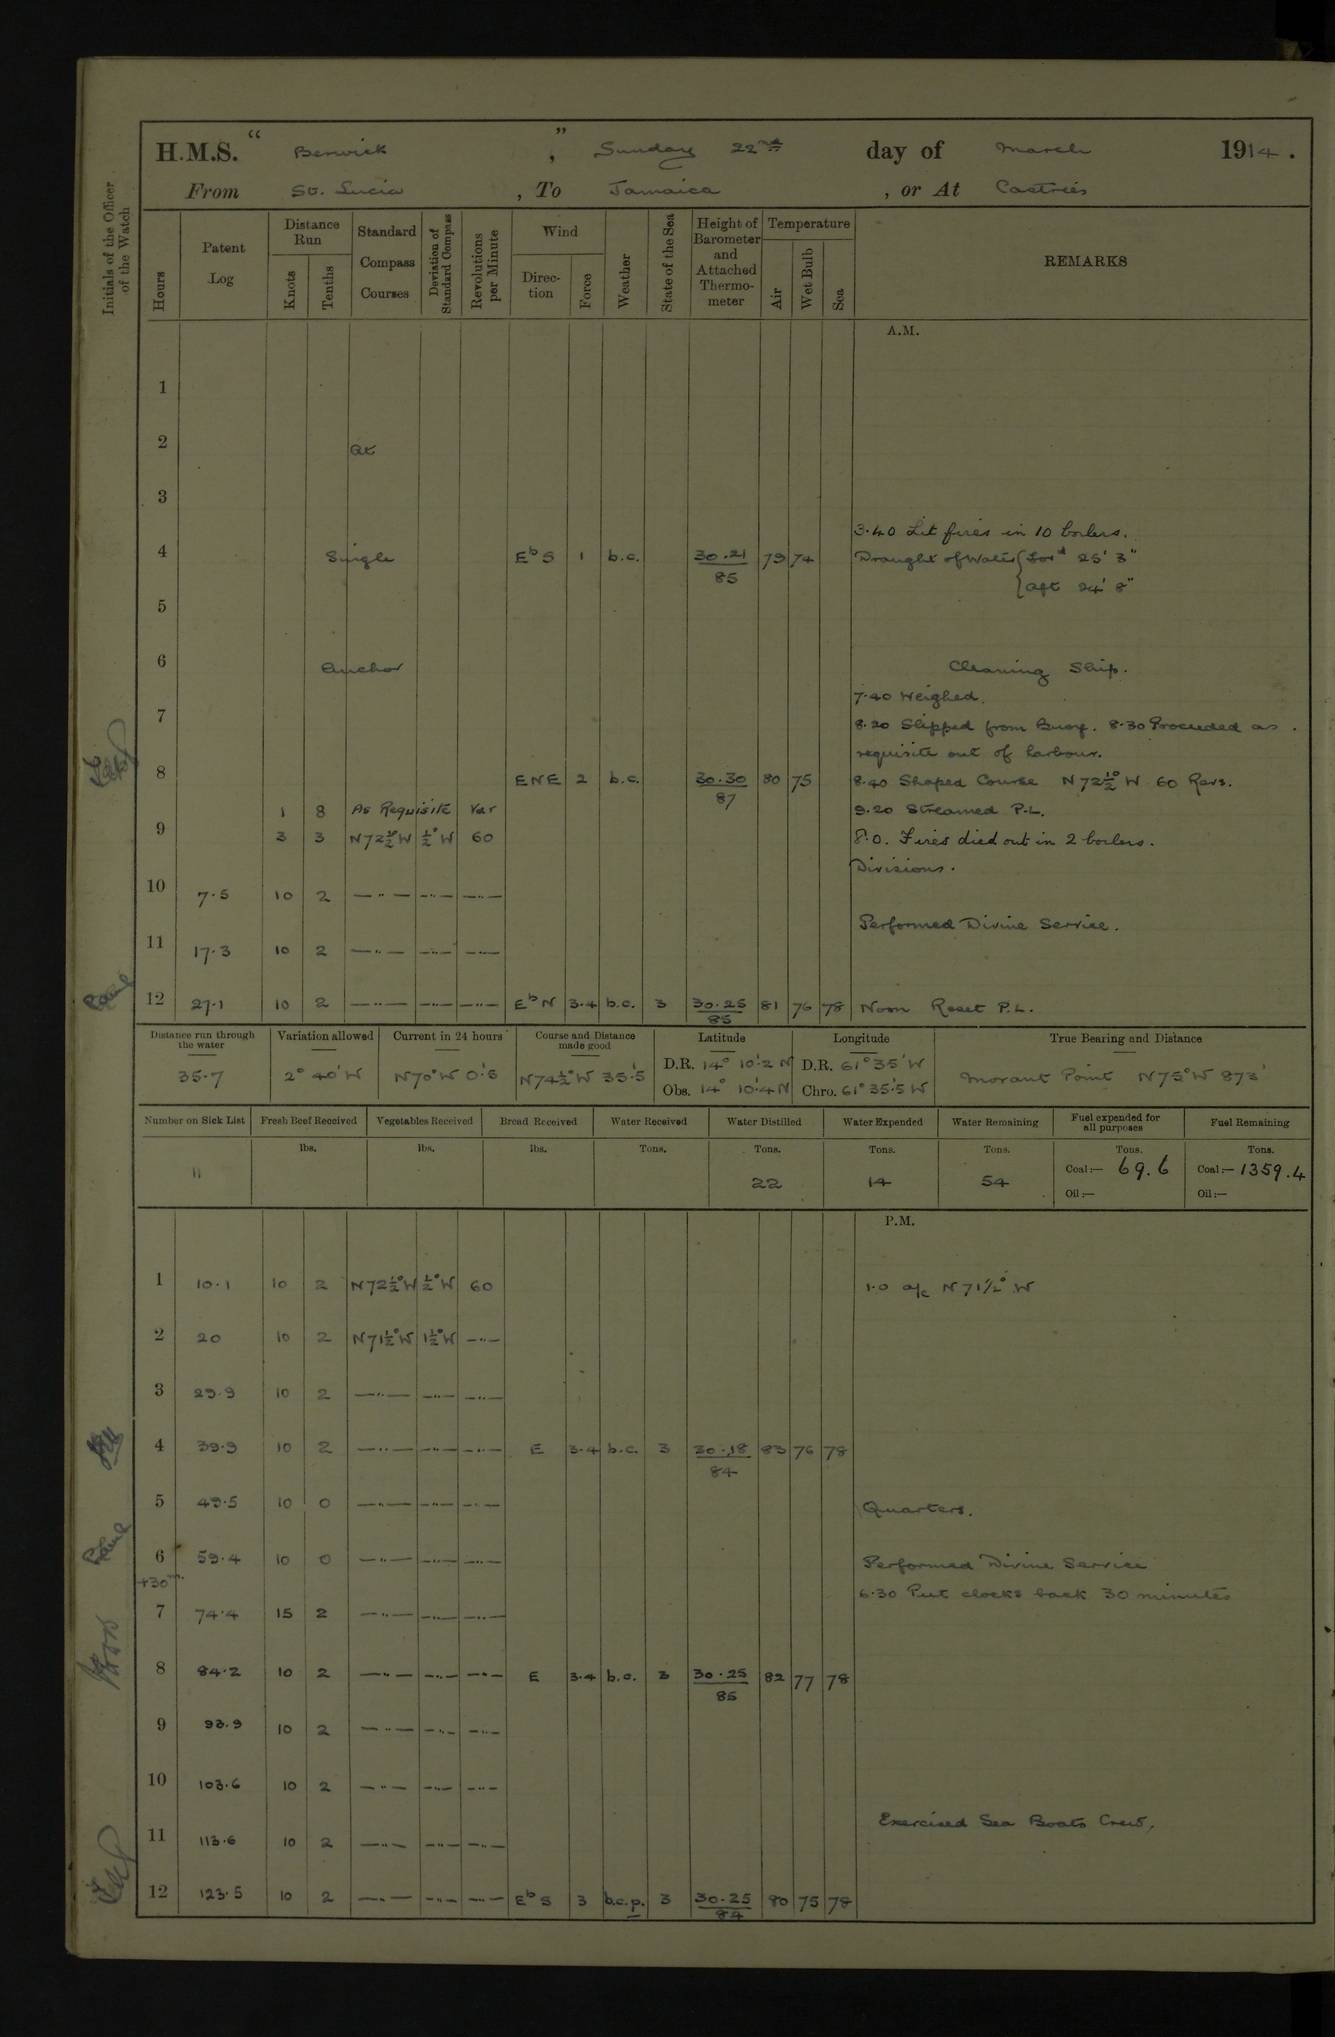 H.M.S. " Berwick " , Sunday 22nd day of March 1914.
From St. Lucia , To Jamaica , or At Castries
Initials of the Officer of the Watch
Hours Patent Log Distance Run Knots Tenths Standard Compass Courses Deviation of Standard Compass Revolutions per Minute Wind Direction Force Weather State of the Sea Height of Barometer and Attached Thermometer Temperature Air Wet Bulb Sea REMARKS
A.M.
1
2 At
3
3.40 Lit fires in 10 boilers.
4 Single EbS 1 b.c. 30.21 79 74 Draught of Water { Ford 25' 3"
85 { Aft 24' 8"
5
6 Anchor Cleaning Ship.
7.40 Weighed.
7 8.20 Slipped from Buoy. 8.30 Proceeded as
requisite out of harbour.
8 ENE 2 b.c. 30.30 80 75 8.40 Shaped Course N72½°W 60 Revs.
87
1 8 As Requisite Var 9.20 Streamed P.L.
9 3 3 N72½°W ½°W 60 8.0. Fires died out in 2 boilers.
Divisions.
10 7.5 10 2 —"— —"— —"—
Performed Divine Service.
11 17.3 10 2 —"— —"— —"—
12 27.1 10 2 —"— —"— —"— EbN 3.4 b.c. 3 30.25 81 76 78 Noon Reset P.L.
85
Distance run through the water Variation allowed Current in 24 hours Course and Distance made good Latitude Longitude True Bearing and Distance
35.7 2° 40' W N70°W 0.'8 N74½°W 35.'5 D.R. 14° 10'.2 N D.R. 61° 35' W Morant Point N75°W 873'
Obs. 14° 10'.4 N Chro. 61° 35'.5 W
Number on Sick List Fresh Beef Received Vegetables Received Bread Received Water Received Water Distilled Water Expended Water Remaining Fuel expended for all purposes Fuel Remaining
lbs. lbs. lbs. Tons. Tons. Tons. Tons. Tons. Tons.
11 22 14 54 Coal:— 69.6 Coal:— 1359.4
Oil:— Oil:—
P.M.
1 10.1 10 2 N72½°W ½°W 60 1.0 a/c N71½°W
2 20 10 2 N71½°W 1½°W —"—
3 29.9 10 2 —"— —"— —"—
4 39.9 10 2 —"— —"— —"— E 3.4 b.c. 3 30.18 83 76 78
84
5 49.5 10 0 —"— —"— —"— Quarters.
6 59.4 10 0 —"— —"— —"— Performed Divine Service
+30m. 6.30 Put clocks back 30 minutes
7 74.4 15 2 —"— —"— —"—
8 84.2 10 2 —"— —"— —"— E 3.4 b.c. 3 30.25 82 77 78
85
9 93.9 10 2 —"— —"— —"—
10 103.6 10 2 —"— —"— —"—
Exercised Sea Boats Crew,
11 113.6 10 2 —"— —"— —"—
12 123.5 10 2 —"— —"— —"— EbS 3 b.c.p. 3 30.25 80 75 78
84